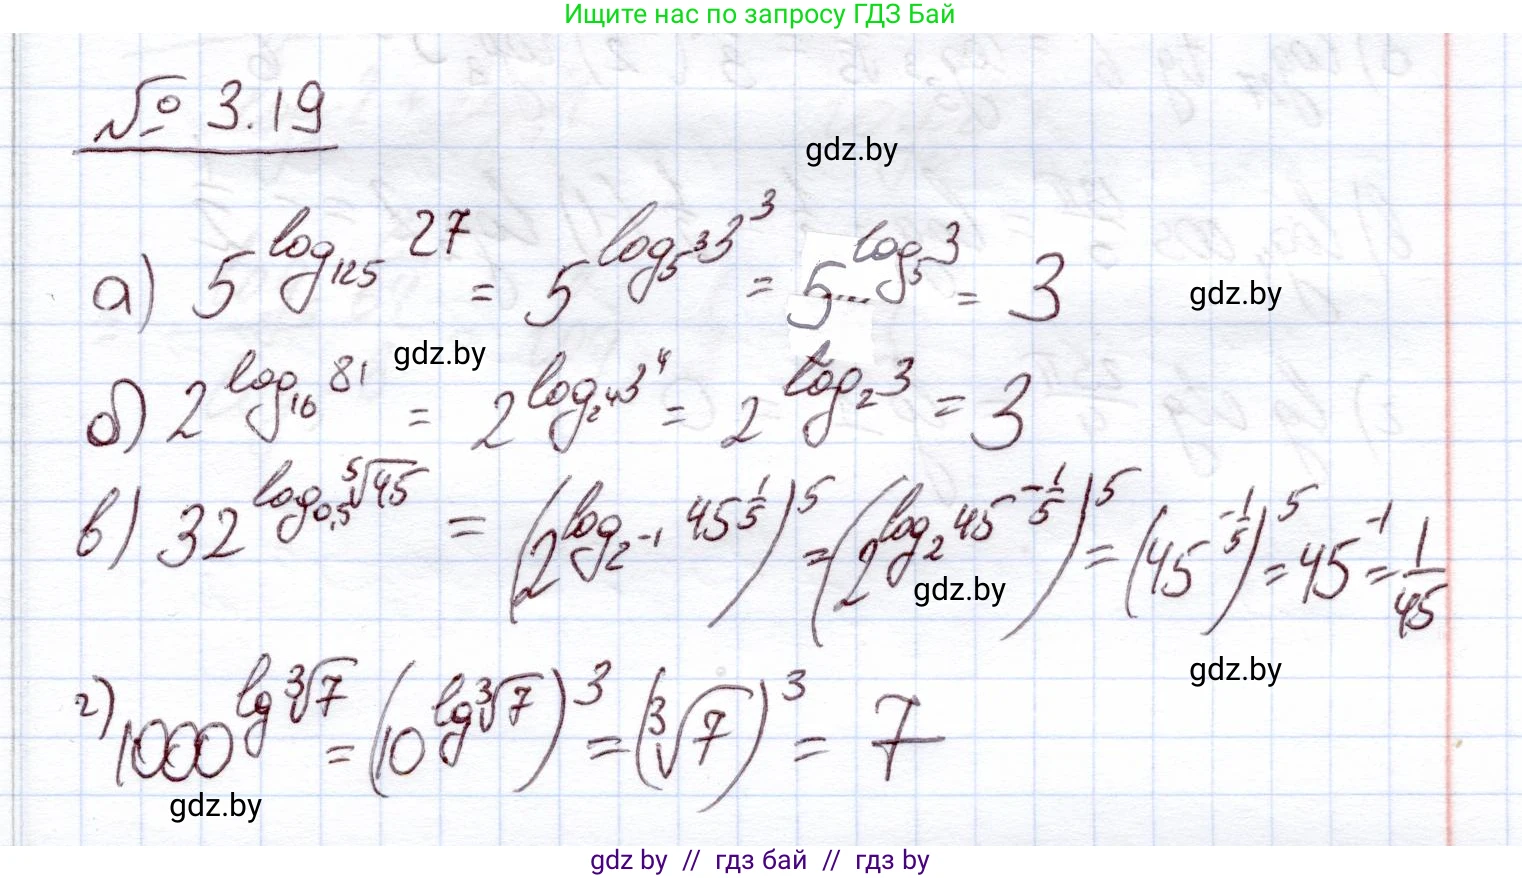 Ищите нас по запросу ГДЗ Бай
№ 3.19
gdz.by
а) 5^{log_{125} 27} = 5^{log_{5^3} 3^3} = 5^{log_5 3} = 3
gdz.by
gdz.by
б) 2^{log_{16} 81} = 2^{log_{2^4} 3^4} = 2^{log_2 3} = 3
в) 32^{log_{0,5} \sqrt[5]{45}} = (2^{log_{2^{-1}} 45^{1/5}})^5 = (2^{log_2 45^{-1/5}})^5 = (45^{-1/5})^5 = 45^{-1} = 1/45
gdz.by
gdz.by
г) 1000^{lg \sqrt[3]{7}} = (10^{lg \sqrt[3]{7}})^3 = (\sqrt[3]{7})^3 = 7
gdz.by
gdz by // гдз бай // гдз by